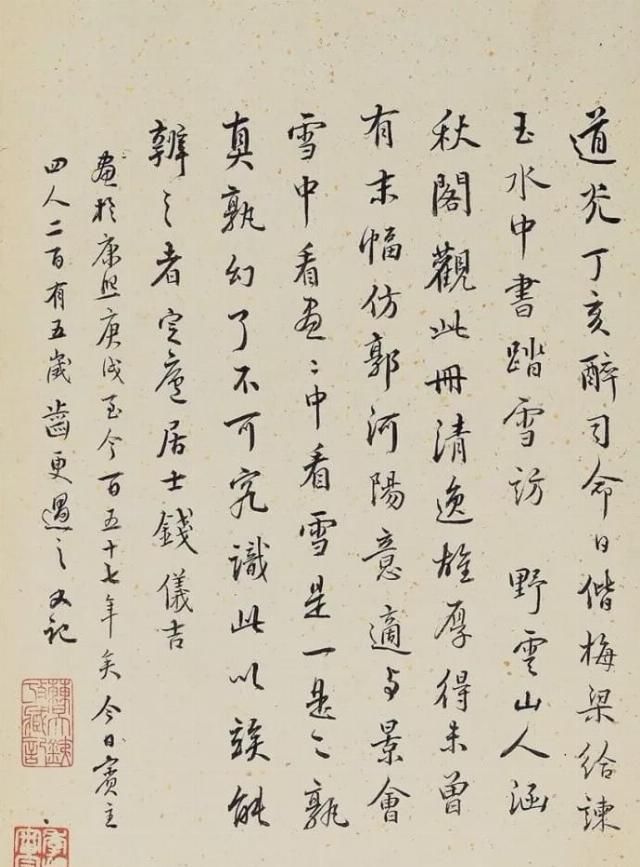 道光丁亥醉司命日偕梅梁給諫
玉水中書踏雪訪 野雲山人涵
秋閣觀此冊清逸雄厚得未曾
有末幅仿郭河陽意適與景會
雪中看畫〻中看雪是一是二孰
真孰幻了不可究識此以竢能
辨之者定廬居士錢儀吉
畫於康熙庚戌至今百五十七年矣今日賓主
四人二百有五歲齒更過之又記